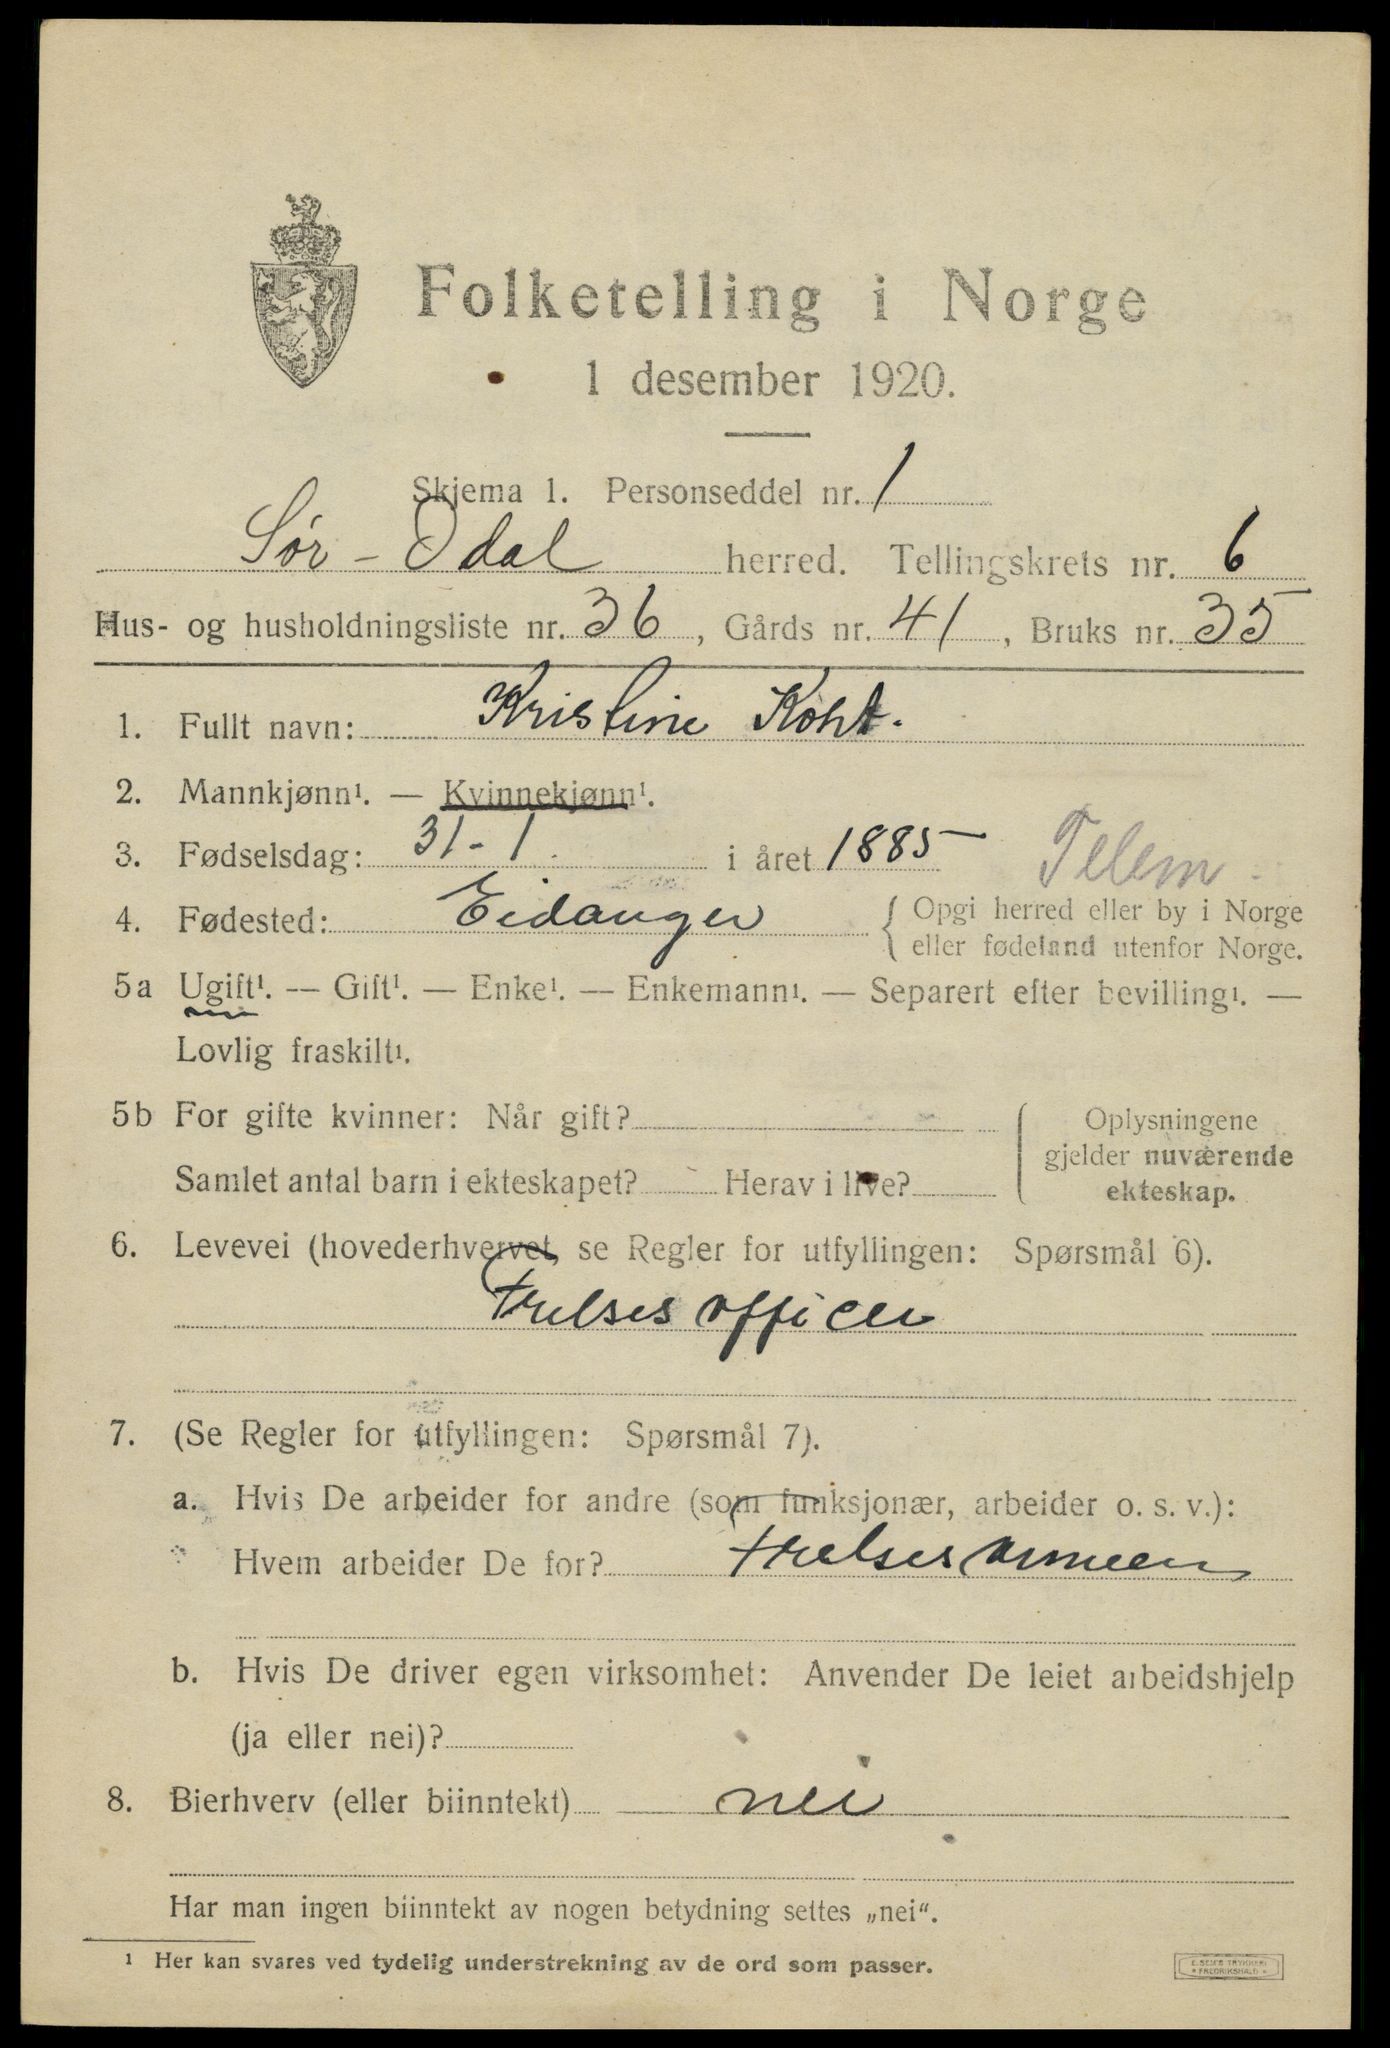 Folketelling i Norge
1 desember 1920.
Skjema 1. Personseddel nr. 1
Sør-Odal herred. Tellingskrets nr. 6
Hus- og husholdningsliste nr. 36, Gårds nr. 41, Bruks nr. 35
1. Fullt navn: Kristine Koht.
2. Mannkjønn¹. — Kvinnekjønn¹.
3. Fødselsdag: 31-1 i året 1885 Telem.
4. Fødested: Eidanger { Opgi herred eller by i Norge
eller fødeland utenfor Norge.
5a Ugift¹. — Gift¹. — Enke¹. — Enkemann¹. — Separert efter bevilling¹. —
Lovlig fraskilt¹.
5b For gifte kvinner: Når gift? Oplysningene
gjelder nuværende
Samlet antal barn i ekteskapet? Herav i live? ekteskap.
6. Levevei (hovederhvervet, se Regler for utfyllingen: Spørsmål 6).
Frelsesofficer
7. (Se Regler for utfyllingen: Spørsmål 7).
a. Hvis De arbeider for andre (som funksjonær, arbeider o. s. v.):
Hvem arbeider De for? Frelsesarmeen
b. Hvis De driver egen virksomhet: Anvender De leiet arbeidshjelp
(ja eller nei)?
8. Bierhverv (eller biinntekt) nei
Har man ingen biinntekt av nogen betydning settes „nei“.
¹ Her kan svares ved tydelig understrekning av de ord som passer.
E. SEM'S TRYKKERI
* FREDRIKSHALD *